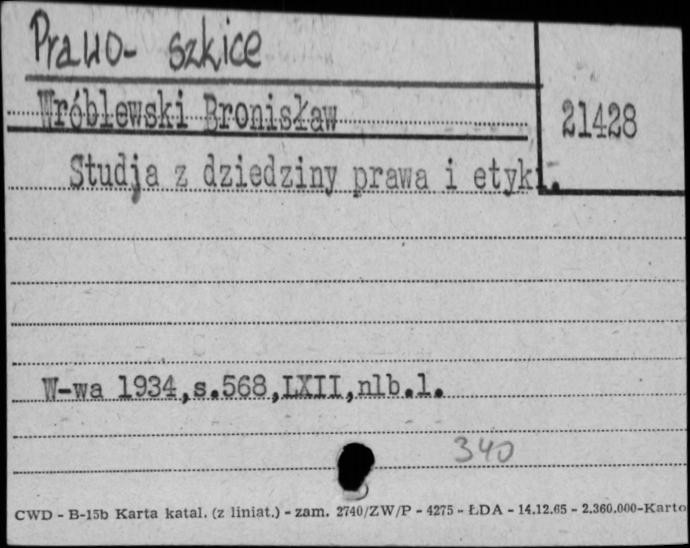 Prawo- szkice
Wróblewski Bronisław
21428
Studja z dziedziny prawa i etyki.
W-wa 1934,s.568,LXII,nlb.1.
340
CWD - B-15b Karta katal. (z liniat.) - zam. 2740/ZW/P - 4275 - ŁDA - 14.12.65 - 2.360.000-Karto